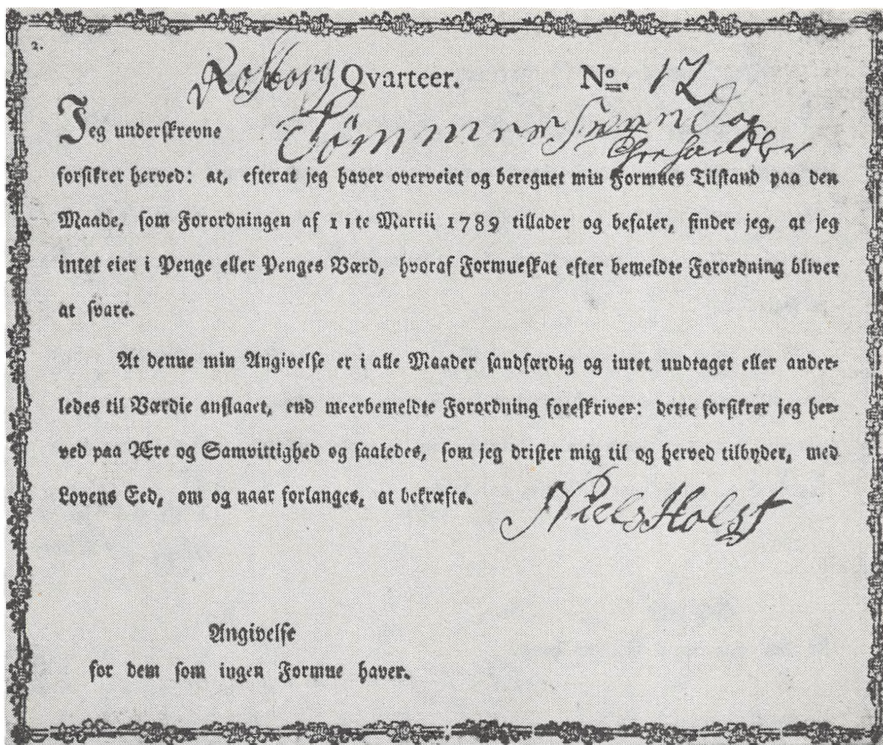 2.
Qvarteer. No. 12
Jeg underskrevne Tømmer Svend og
forsikrer herved: at, efterat jeg haver overveiet og beregnet min Formues Tilstand paa den
Maade, som Forordningen af 11te Martii 1789 tillader og befaler, finder jeg, at jeg
intet eier i Penge eller Penges Værd, hvoraf Formueskat efter bemeldte Forordning bliver
at svare.
At denne min Angivelse er i alle Maader sandfærdig og intet undtaget eller ander-
ledes til Værdie anslaaet, end meerbemeldte Forordning foreskriver: dette forsikrer jeg her-
ved paa Ære og Samvittighed og saaledes, som jeg drister mig til og herved tilbyder, med
Lovens Eed, om og naar forlanges, at bekræfte.
Niels Holst
Angivelse
for dem som ingen Formue haver.